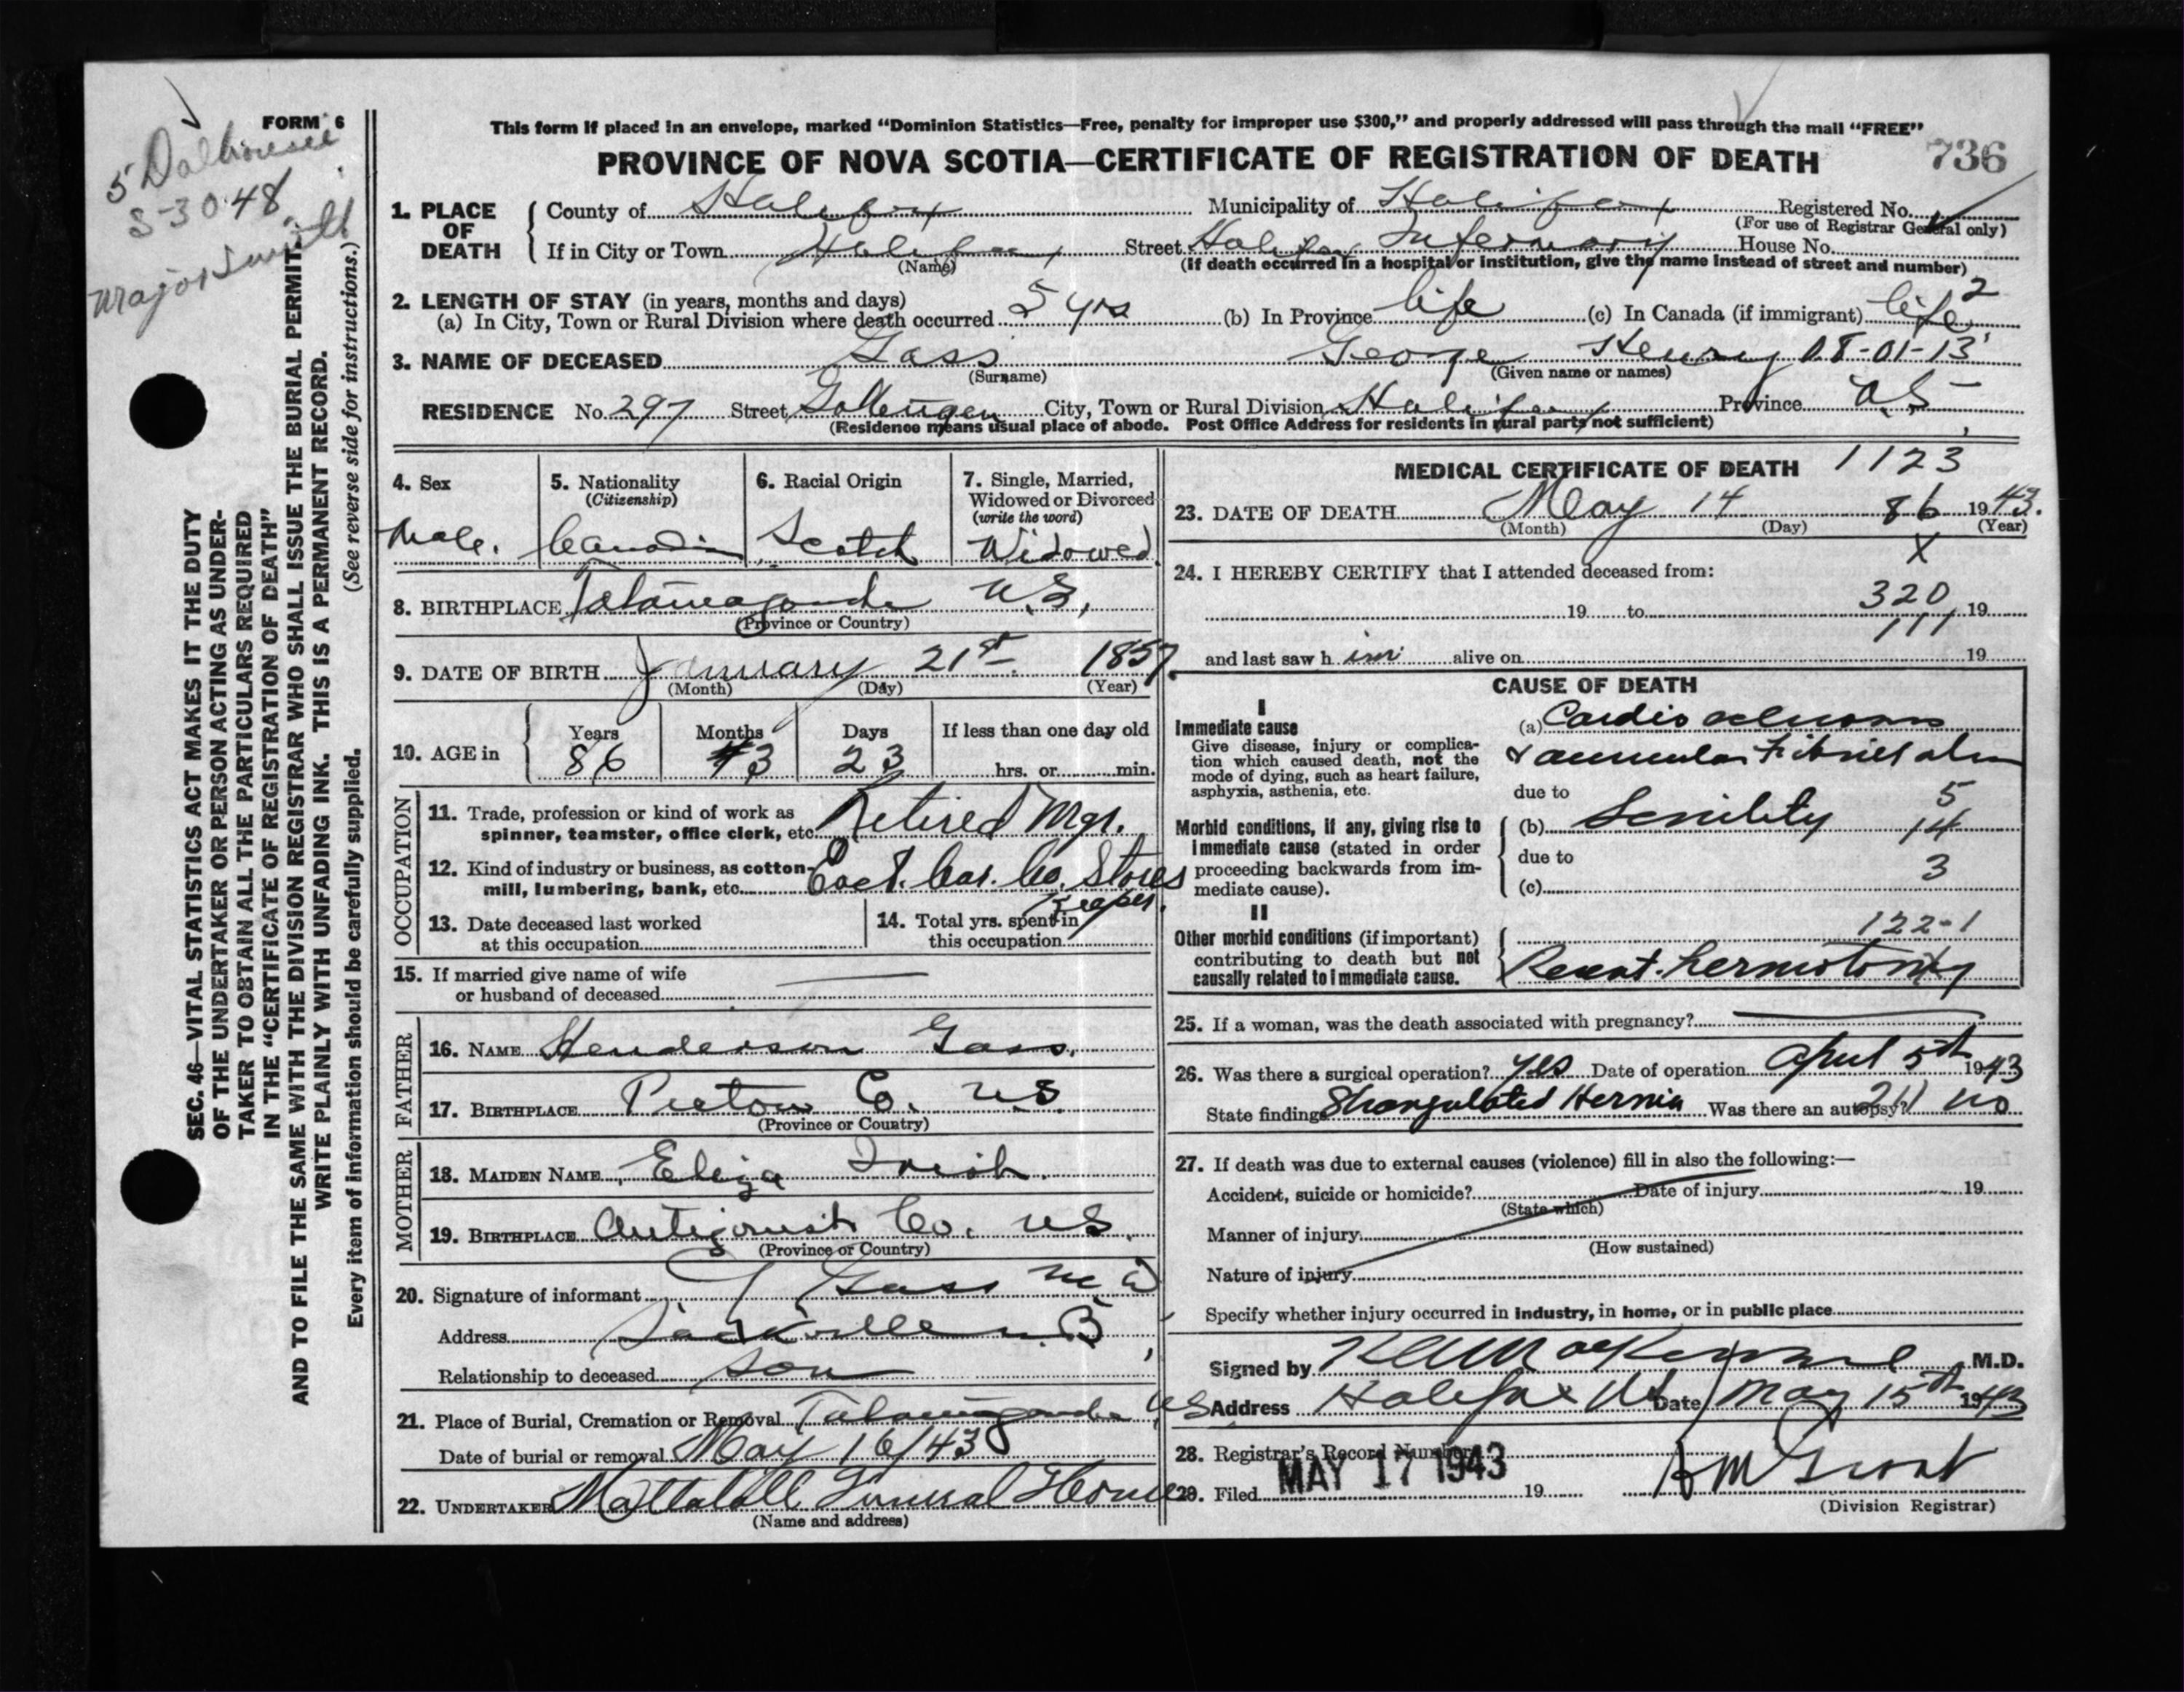 FORM 6
5 Dalhousie
S-3048
Major Smith
This form if placed in an envelope, marked “Dominion Statistics—Free, penalty for improper use $300,” and properly addressed will pass through the mail “FREE”
PROVINCE OF NOVA SCOTIA—CERTIFICATE OF REGISTRATION OF DEATH 736
1. PLACE OF DEATH
County of Halifax Municipality of Halifax Registered No.
(For use of Registrar General only)
If in City or Town Halifax Street Halifax Infermary House No.
(Name) (If death occurred in a hospital or institution, give the name instead of street and number)
2. LENGTH OF STAY (in years, months and days)
(a) In City, Town or Rural Division where death occurred 5 yrs (b) In Province life (c) In Canada (if immigrant) life 2
3. NAME OF DECEASED Gass George Henry 08-01-13
(Surname) (Given name or names)
RESIDENCE No. 297 Street Gottengen City, Town or Rural Division Halifax Province N.S
(Residence means usual place of abode. Post Office Address for residents in rural parts not sufficient)
4. Sex
Male.
5. Nationality
(Citizenship)
Canadian
6. Racial Origin
Scotch
7. Single, Married,
Widowed or Divorced
(write the word)
Widowed
8. BIRTHPLACE Tatamagouche N.S.
(Province or Country)
9. DATE OF BIRTH January 21st 1857
(Month) (Day) (Year)
10. AGE in
Years Months Days If less than one day old
86 3 23 hrs. or min.
OCCUPATION
11. Trade, profession or kind of work as
spinner, teamster, office clerk, etc. Retired Mgr.
12. Kind of industry or business, as cotton-
mill, lumbering, bank, etc. East. Car. Co. Stores
Keeper.
13. Date deceased last worked
at this occupation
14. Total yrs. spent in
this occupation
15. If married give name of wife
or husband of deceased
FATHER
16. NAME Henderson Gass.
17. BIRTHPLACE Pictou Co. N.S
(Province or Country)
MOTHER
18. MAIDEN NAME Eliza Irish.
19. BIRTHPLACE Antigonish Co. N.S.
(Province or Country)
20. Signature of informant Gass M D
Address Sackville N.B
Relationship to deceased son
21. Place of Burial, Cremation or Removal Tatamagouche N.S
Date of burial or removal May 16/43
22. UNDERTAKER Mattatall Funeral Home
(Name and address)
MEDICAL CERTIFICATE OF DEATH 1123
23. DATE OF DEATH May 14 86 1943.
(Month) (Day) (Year)
X
24. I HEREBY CERTIFY that I attended deceased from:
19 to 320 19
111
and last saw h im alive on 19
CAUSE OF DEATH
I
Immediate cause
Give disease, injury or complica-
tion which caused death, not the
mode of dying, such as heart failure,
asphyxia, asthenia, etc.
(a) Cardio
& auricular Fibrillation
due to 5
Morbid conditions, if any, giving rise to
immediate cause (stated in order
proceeding backwards from im-
mediate cause).
(b) Senility 14
due to
3
(c)
II
Other morbid conditions (if important)
contributing to death but not
causally related to immediate cause.
122-1
Recent herniotomy
25. If a woman, was the death associated with pregnancy?
26. Was there a surgical operation? yes Date of operation April 5th 1943
State findings Strangulated Hernia Was there an autopsy? 211 no
27. If death was due to external causes (violence) fill in also the following:—
Accident, suicide or homicide? Date of injury 19
(State which)
Manner of injury
(How sustained)
Nature of injury
Specify whether injury occurred in industry, in home, or in public place
Signed by K A MacKenzie M.D.
Address Halifax NS Date May 15th 1943
28. Registrar's Record Number
MAY 17 1943
29. Filed 19
(Division Registrar)
SEC. 46—VITAL STATISTICS ACT MAKES IT THE DUTY
OF THE UNDERTAKER OR PERSON ACTING AS UNDER-
TAKER TO OBTAIN ALL THE PARTICULARS REQUIRED
IN THE “CERTIFICATE OF REGISTRATION OF DEATH”
AND TO FILE THE SAME WITH THE DIVISION REGISTRAR WHO SHALL ISSUE THE BURIAL PERMIT.
WRITE PLAINLY WITH UNFADING INK. THIS IS A PERMANENT RECORD.
Every item of information should be carefully supplied. (See reverse side for instructions.)